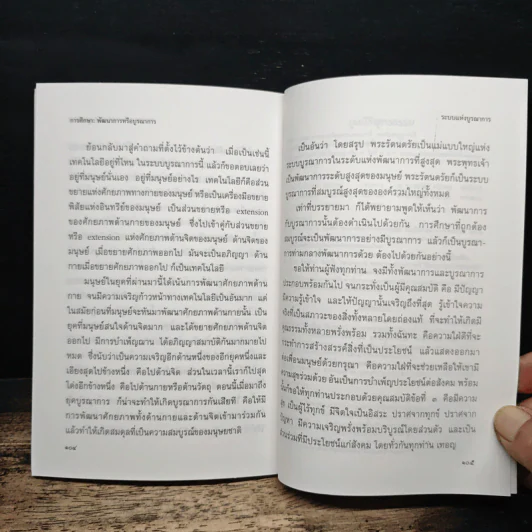 การศึกษา: พัฒนาการหรือบูรณาการ
ย้อนกลับมาสู่คำถามที่ตั้งไว้ข้างต้นว่า เมื่อเป็นเช่นนี้
เทคโนโลยีอยู่ที่ไหน ในระบบบูรณาการนี้ แล้วก็ขอตอบเลยว่า
อยู่ที่มนุษย์นั่นเอง อยู่ที่มนุษย์อย่างไร เทคโนโลยีก็คือส่วน
ขยายแห่งศักยภาพทางกายของมนุษย์ หรือเป็นเครื่องมือขยาย
พิสัยแห่งอินทรีย์ของมนุษย์ เป็นส่วนขยายหรือ extension
ของศักยภาพด้านกายของมนุษย์ ซึ่งไปเข้าคู่กับส่วนขยาย
หรือ extension แห่งศักยภาพด้านจิตของมนุษย์ ด้านจิตของ
มนุษย์ เมื่อขยายศักยภาพออกไป มันจะเป็นอภิญญา ด้าน
กายเมื่อขยายศักยภาพออกไป ก็เป็นเทคโนโลยี
มนุษย์ในยุคที่ผ่านมานี้ได้เน้นการพัฒนาศักยภาพด้าน
กาย จนมีความเจริญก้าวหน้าทางเทคโนโลยีเป็นอันมาก แต่
ในสมัยก่อนที่มนุษย์จะหันมาพัฒนาศักยภาพด้านกายนั้น เป็น
ยุคที่มนุษย์สนใจด้านจิตมาก และได้ขยายศักยภาพด้านจิต
ออกไป มีการบำเพ็ญฌาน ได้อภิญญาสมาบัติกันมากมายไป
หมด ซึ่งนับว่าเป็นความเจริญอีกด้านหนึ่งของอีกยุคหนึ่งและ
เอียงสุดไปข้างหนึ่ง คือไปด้านจิต ส่วนในเวลานี้เราก็ไปสุด
โต่งอีกข้างหนึ่ง คือไปด้านกายหรือด้านวัตถุ ตอนนี้เมื่อมาถึง
ยุคบูรณาการ ก็น่าจะทำให้เกิดบูรณาการกันเสียที คือให้มี
การพัฒนาศักยภาพทั้งด้านกายและด้านจิตเข้ามาร่วมกัน
แล้วทำให้เกิดสมดุลที่เป็นความสมบูรณ์ของมนุษยชาติ
๑๐๔
ระบบแห่งบูรณาการ
เป็นอันว่า โดยสรุป พระรัตนตรัยเป็นแม่แบบใหญ่แห่ง
ระบบบูรณาการในระดับแห่งพัฒนาการที่สูงสุด พระพุทธเจ้า
เป็นพัฒนาการระดับสูงสุดของมนุษย์ พระรัตนตรัยก็เป็นระบบ
บูรณาการที่สมบูรณ์สูงสุดขององค์รวมใหญ่ทั้งหมด
เท่าที่บรรยายมา ก็ได้พยายามพูดให้เห็นว่า พัฒนาการ
กับบูรณาการนั้นต้องดำเนินไปด้วยกัน การศึกษาที่ถูกต้อง
สมบูรณ์จะเป็นพัฒนาการอย่างมีบูรณาการ แล้วก็เป็นบูรณา-
การท่ามกลางพัฒนาการด้วย ต้องไปด้วยกันอย่างนี้
ขอให้ท่านผู้ฟังทุกท่าน จงมีทั้งพัฒนาการและบูรณาการ
ประกอบพร้อมกันไป จนกระทั่งเป็นผู้มีคุณสมบัติ คือ มีปัญญา
มีความรู้เข้าใจ และให้ปัญญานั้นเจริญถึงที่สุด รู้เข้าใจความ
จริงที่เป็นสภาวะของสิ่งทั้งหลายโดยถ่องแท้ ที่จะทำให้เกิดมี
คุณธรรมทั้งหลายพรั่งพร้อม รวมทั้งฉันทะ คือความใฝ่ดีที่จะ
กระทำการสร้างสรรค์สิ่งที่เป็นประโยชน์ แล้วแสดงออกมา
ต่อเพื่อนมนุษย์ด้วยกรุณา คือความใฝ่ที่จะช่วยเหลือให้เขามี
ความสุขร่วมด้วย อันเป็นการบำเพ็ญประโยชน์ต่อสังคม พร้อม
ให้ทุกท่านประกอบด้วยคุณสมบัติข้อที่ ๓ คือมีความ
เป็นผู้ไร้ทุกข์ มีจิตใจเป็นอิสระ ปราศจากทุกข์ ปราศจาก
ปัญหา มีความเจริญพรั่งพร้อมบริบูรณ์โดยส่วนตัว และเป็น
ส่วนร่วมที่มีประโยชน์แก่สังคม โดยทั่วกันทุกท่าน เทอญ
๑๐๕